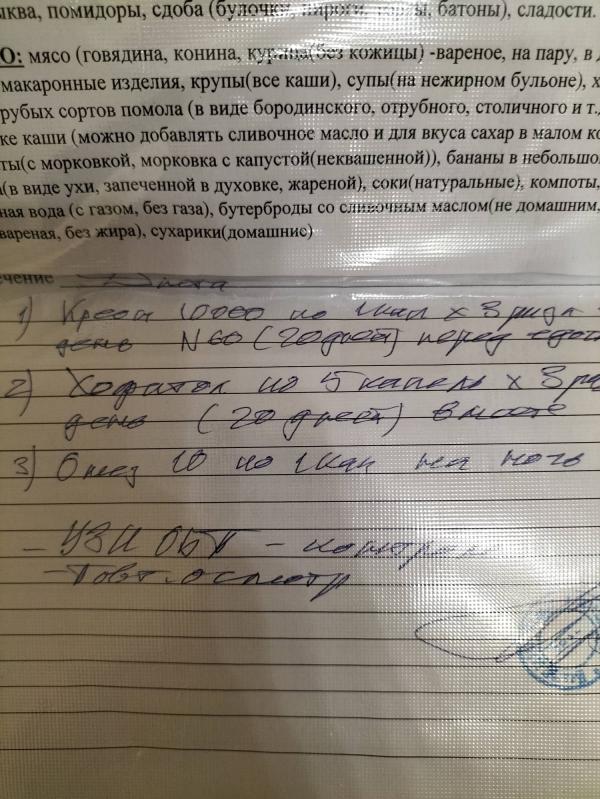 ыква, помидоры, сдоба (булочки, пироги, торты, батоны), сладости.
О: мясо (говядина, конина, курица(без кожицы) -вареное, на пару, в д
макаронные изделия, крупы(все каши), супы(на нежирном бульоне), х
рубых сортов помола (в виде бородинского, отрубного, столичного и т.
ке каши (можно добавлять сливочное масло и для вкуса сахар в малом ко
ты(с морковкой, морковка с капустой(неквашенной)), бананы в небольшо
(в виде ухи, запеченной в духовке, жареной), соки(натуральные), компоты,
ная вода (с газом, без газа), бутерброды со сливочным маслом(не домашним,
вареная, без жира), сухарики(домашние)
ечение Диета
1) Креон 10000 по 1кап x 3 раза
день N60 (20дней) перед едой
2) Хофитол по 5 капель x 3 ра
день (20 дней) вместе
3) Омез 10 по 1кап на ночь
- УЗИ ОБП - контроль
- Повт. осмотр